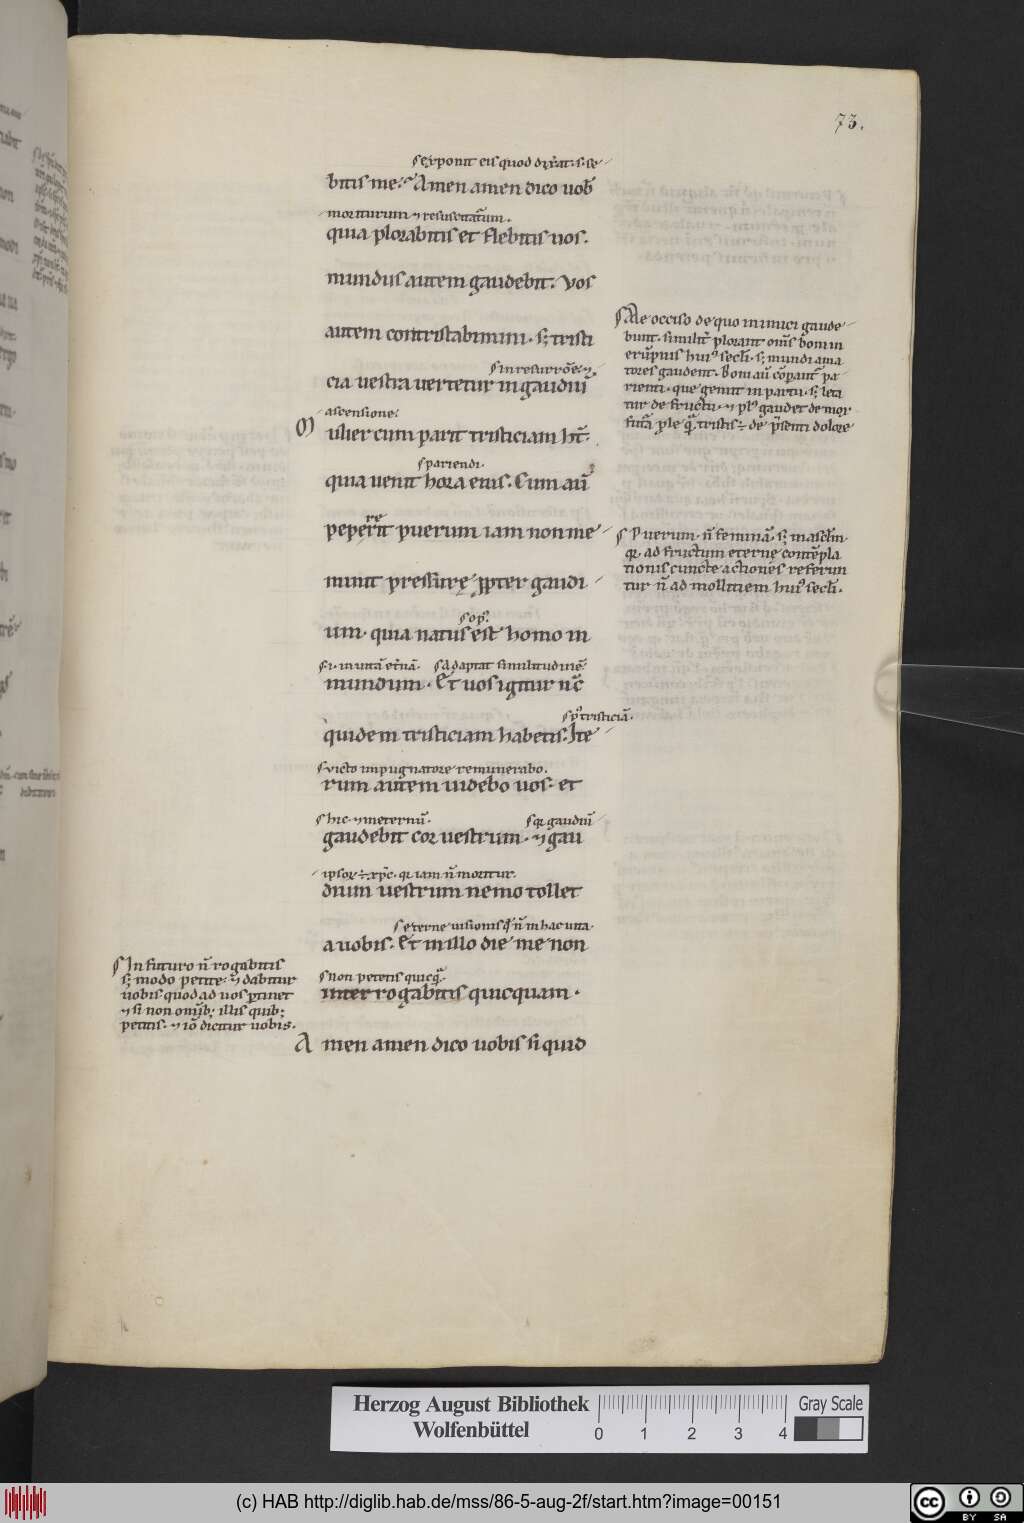 73.
exponit eis quod dixerat
bitis me. Amen amen dico uob̄
morıturum ⁊ resuscitatum.
quia plorabitis et flebitis uos.
mundus autem gaudebit. Vos
autem contristabimini. sʒ tristi
in resurr̄oe. ⁊
cia uestra uertetur in gaudiū
ascensione.
M ulier cum parit tristiciam ht̄.
pariendi.
quia uenit hora eius. Cum aū
pepererit puerum iam non me
minit pressurę ꝓpter gaudi
um. quia natus est homo in
.i. in uitā et̄nā. Adaptat similitudinē
mundum. Et uos igitur nc̄
quidem tristiciam habetis. Ite
tristiciā.
uicto impugnatore remunerabo.
rum autem uidebo uos. et
hic. ⁊ in eternū. gaudiū
gaudebit cor uestrum. ⁊ gau
xp̄c. iam n̄ moritur.
dium uestrum nemo tollet
eterne uisionis in hac uita.
a uobis. Et in illo die me non
non petetis quicq̄
interrogabitis quicquam.
A men amen dico uobis si quid
Me occiso de quo inimici gaude
bunt. similit̄ plorant om̄s boni in
sʒ mundi ama
tores gaudent. Boni aū
rienti. que gemit in partu. sʒ leta
tur de fructu. gaudet de
tristis de dolore
Puerum. n̄ feminā. sʒ mascl̄m.
ad fructum eternę contēpla
tionis cuncte actiones referun
tur n̄ ad mollitiem hui⁹ secl̄i.
In futuro n̄ rogabitis
sʒ modo petite. ⁊ dabitur
uobis quod ad uos ꝑtinet
⁊ si non illis
petitis. ⁊ iō dicitur uobis.
Herzog August Bibliothek
Wolfenbüttel
0 1 2 3 4
Gray Scale
(c) HAB http://diglib.hab.de/mss/86-5-aug-2f/start.htm?image=00151
cc BY SA